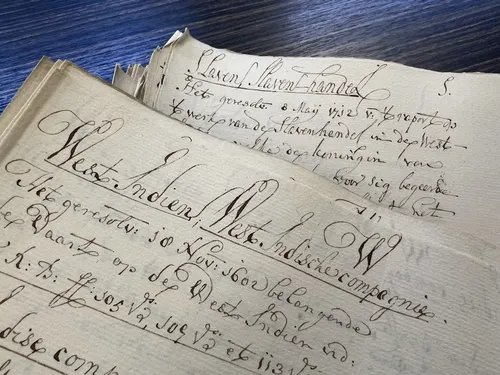 Slaven, Slavenhandel
S.
Het geresolv. 8 Maij 1712 v. 't raport op
't werk van de Slavenhandel in de West
de koningin van
voor sig begeerde
het
W
West Indien, West Indische compagnie.
Het geresolv: 18 Nov: 1602 belangende
de Vaart op de West Indien vid:
R: B: ff 105 vso, 109 vso et 113 vso
Indise comp